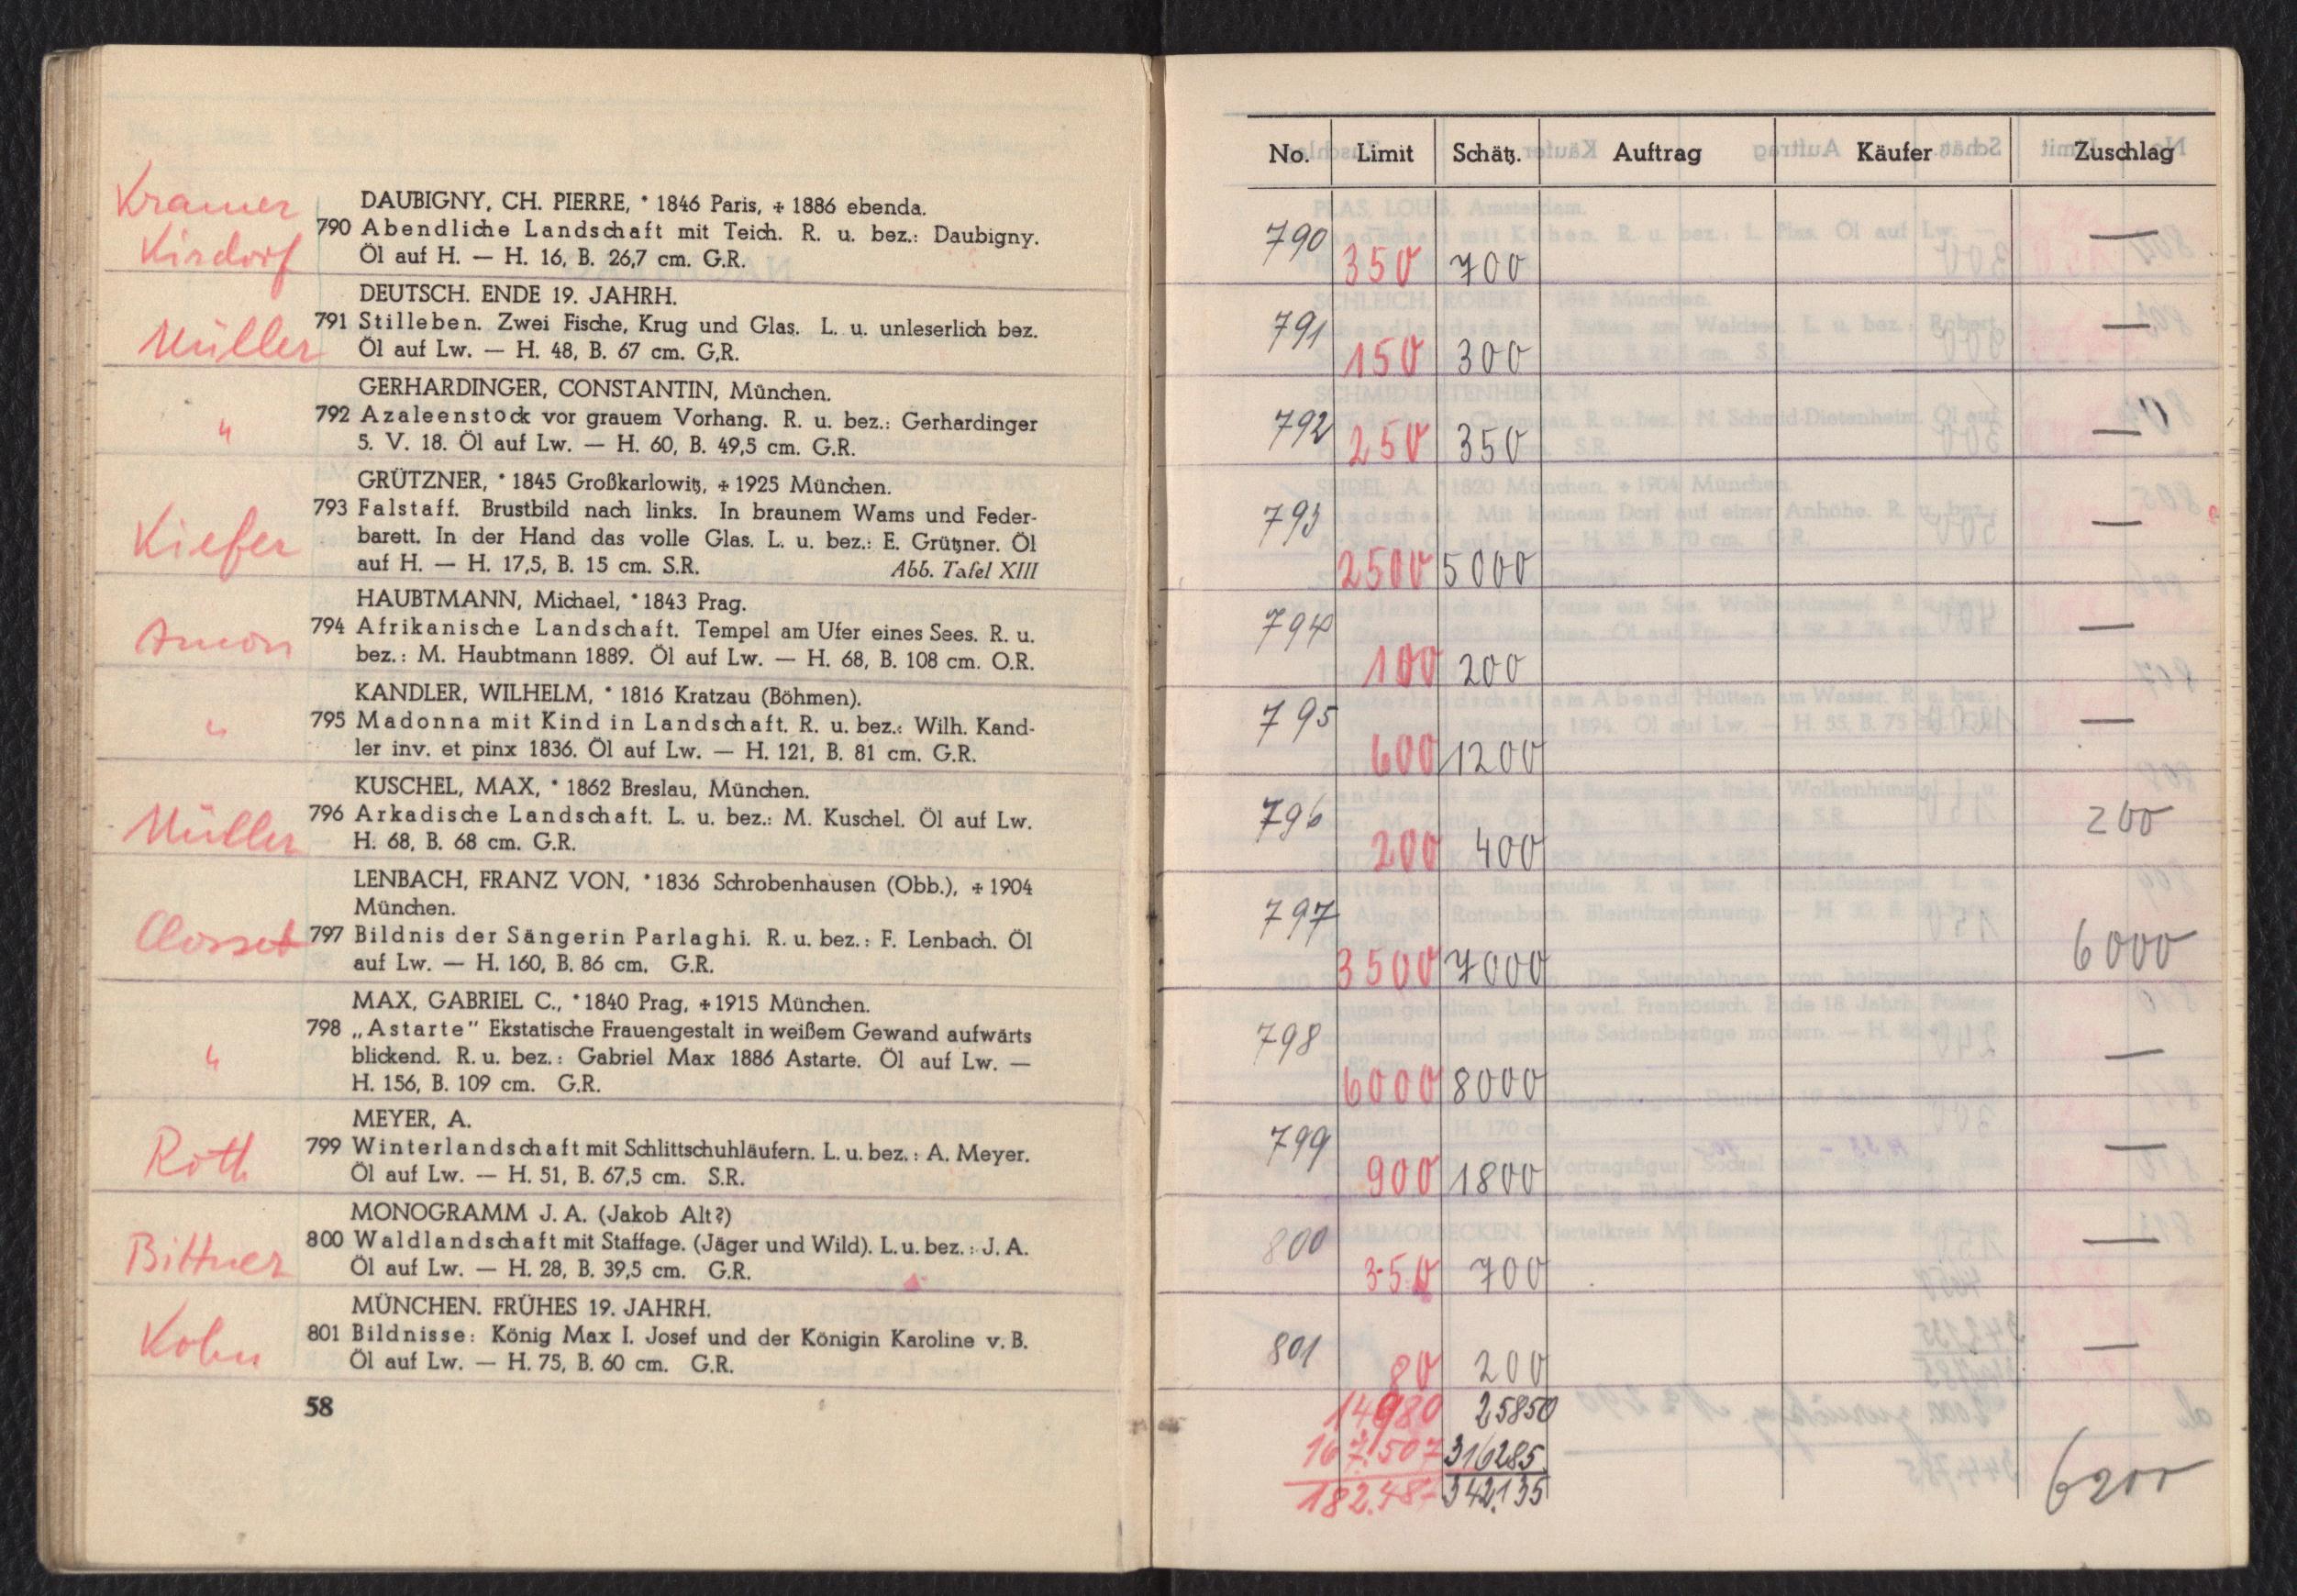 Kramer
Kirdorf
DAUBIGNY, CH. PIERRE, * 1846 Paris, + 1886 ebenda.
790 Abendliche Landschaft mit Teich. R. u. bez.: Daubigny.
Öl auf H. — H. 16, B. 26,7 cm. G.R.
Müller
DEUTSCH. ENDE 19. JAHRH.
791 Stilleben. Zwei Fische, Krug und Glas. L. u. unleserlich bez.
Öl auf Lw. — H. 48, B. 67 cm. G,R.
"
GERHARDINGER, CONSTANTIN, München.
792 Azaleenstock vor grauem Vorhang. R. u. bez.: Gerhardinger
5. V. 18. Öl auf Lw. — H. 60, B. 49,5 cm. G.R.
Kiefer
GRÜTZNER, * 1845 Großkarlowitz, + 1925 München.
793 Falstaff. Brustbild nach links. In braunem Wams und Feder-
barett. In der Hand das volle Glas. L. u. bez.: E. Grützner. Öl
auf H. — H. 17,5, B. 15 cm. S.R. Abb. Tafel XIII
Amon
HAUBTMANN, Michael, * 1843 Prag.
794 Afrikanische Landschaft. Tempel am Ufer eines Sees. R. u.
bez.: M. Haubtmann 1889. Öl auf Lw. — H. 68, B. 108 cm. O.R.
"
KANDLER, WILHELM, * 1816 Kratzau (Böhmen).
795 Madonna mit Kind in Landschaft. R. u. bez.: Wilh. Kand-
ler inv. et pinx 1836. Öl auf Lw. — H. 121, B. 81 cm. G.R.
Müller
KUSCHEL, MAX, * 1862 Breslau, München.
796 Arkadische Landschaft. L. u. bez.: M. Kuschel. Öl auf Lw.
H. 68, B. 68 cm. G.R.
Closset
LENBACH, FRANZ VON, * 1836 Schrobenhausen (Obb.), + 1904
München.
797 Bildnis der Sängerin Parlaghi. R. u. bez.: F. Lenbach. Öl
auf Lw. — H. 160, B. 86 cm. G.R.
"
MAX, GABRIEL C., * 1840 Prag, + 1915 München.
798 „Astarte" Ekstatische Frauengestalt in weißem Gewand aufwärts
blickend. R. u. bez.: Gabriel Max 1886 Astarte. Öl auf Lw. —
H. 156, B. 109 cm. G.R.
Roth
MEYER, A.
799 Winterlandschaft mit Schlittschuhläufern. L. u. bez.: A. Meyer.
Öl auf Lw. — H. 51, B. 67,5 cm. S.R.
Bittner
MONOGRAMM J. A. (Jakob Alt?)
800 Waldlandschaft mit Staffage. (Jäger und Wild). L. u. bez.: J. A.
Öl auf Lw. — H. 28, B. 39,5 cm. G.R.
Kohn
MÜNCHEN. FRÜHES 19. JAHRH.
801 Bildnisse: König Max I. Josef und der Königin Karoline v. B.
Öl auf Lw. — H. 75, B. 60 cm. G.R.
58
No. Limit Schätz. Auftrag Käufer Zuschlag
790 350 700 —
791 150 300 —
792 250 350 —
793 2500 5000 —
794 100 200 —
795 600 1200 —
796 200 400 200
797 3500 7000 6000
798 6000 8000 —
799 900 1800 —
800 350 700 —
801 80 200 —
14980 25850
167.507 316285
182.487 342.135
6200